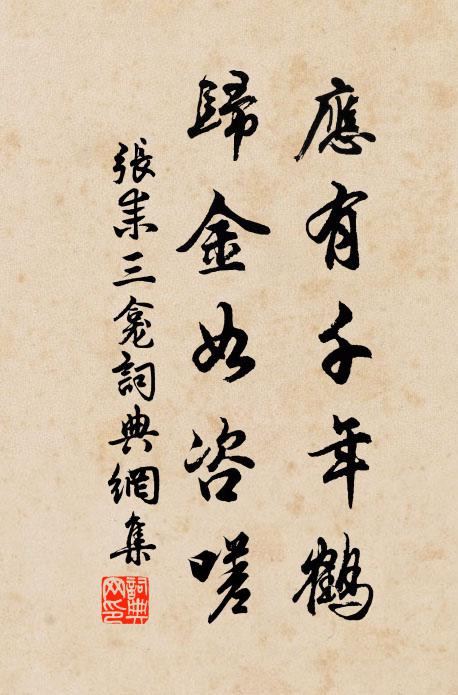 應有千年鶴
歸金如咨嗟
張耒三龛詞典網集
詞典網印